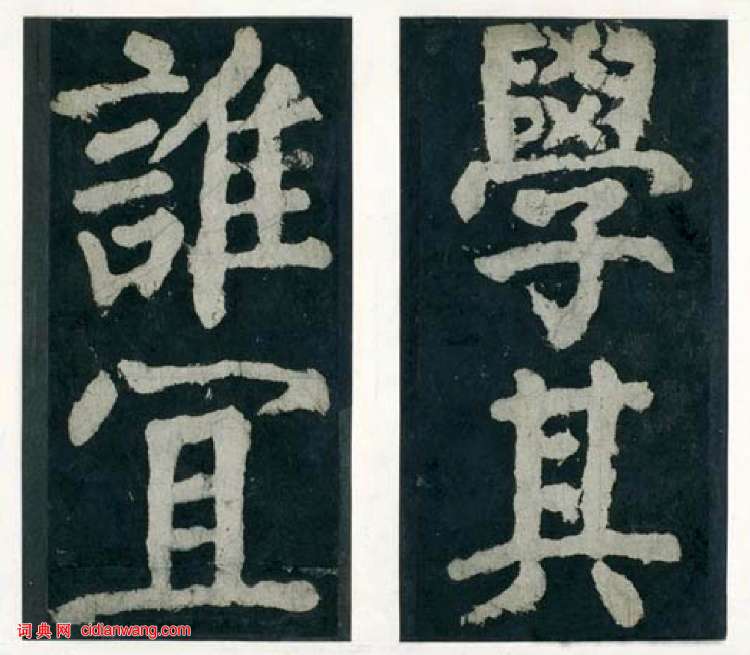 學其
誰冝
词典网 cidianwang.com